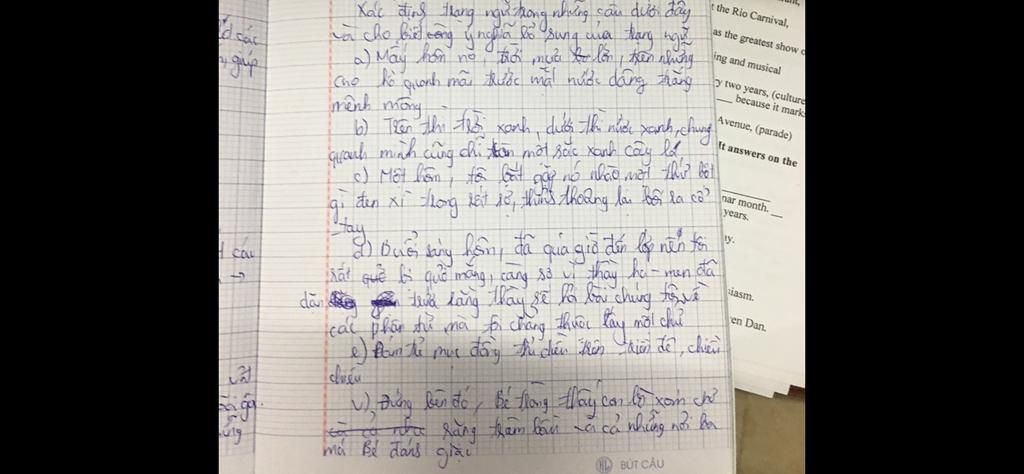 Xác định trạng ngữ trong những câu dưới đây
và cho biết công ý nghĩa bổ sung của trạng ngữ
a) Mấy hôn nọ, trời mưa lớn, trên những
cho hồ quanh mãi trước mặt nước dâng trắng
mênh mông
b) Trên thì trời xanh, dưới thì nước xanh, chung
quanh mình cũng chỉ toàn một sắc xanh cây lá
c) Một hôn, tôi bắt gặp nó nhào một thứ bột
gì đen xì trong rất sợ, thỉnh thoảng lại bôi ra cổ
tay
d) Buổi sáng hôn, đã quá giờ đến lớp nên tôi
rất sợ bị quở mắng, càng sợ vì thầy ha-men đã
dặn trước rằng thầy sẽ hỏi bài chúng tôi về
các phân từ mà tôi chẳng thuộc lấy một chữ
e) Đám trẻ mục đồng thả diều trên triền đê, chiều
chiều
v) Đứng bên đó, Bé trông thấy con lộ xóm chờ
rặng trâm bầu và cả những nơi ba
má Bé đánh giặc
BÚT CÂU
giúp
t the Rio Carnival,
as the greatest show o
ing and musical
y two years, (culture
___ because it mark
Avenue, (parade)
It answers on the
nar month. __
years.
ty.
siasm.
en Dan.